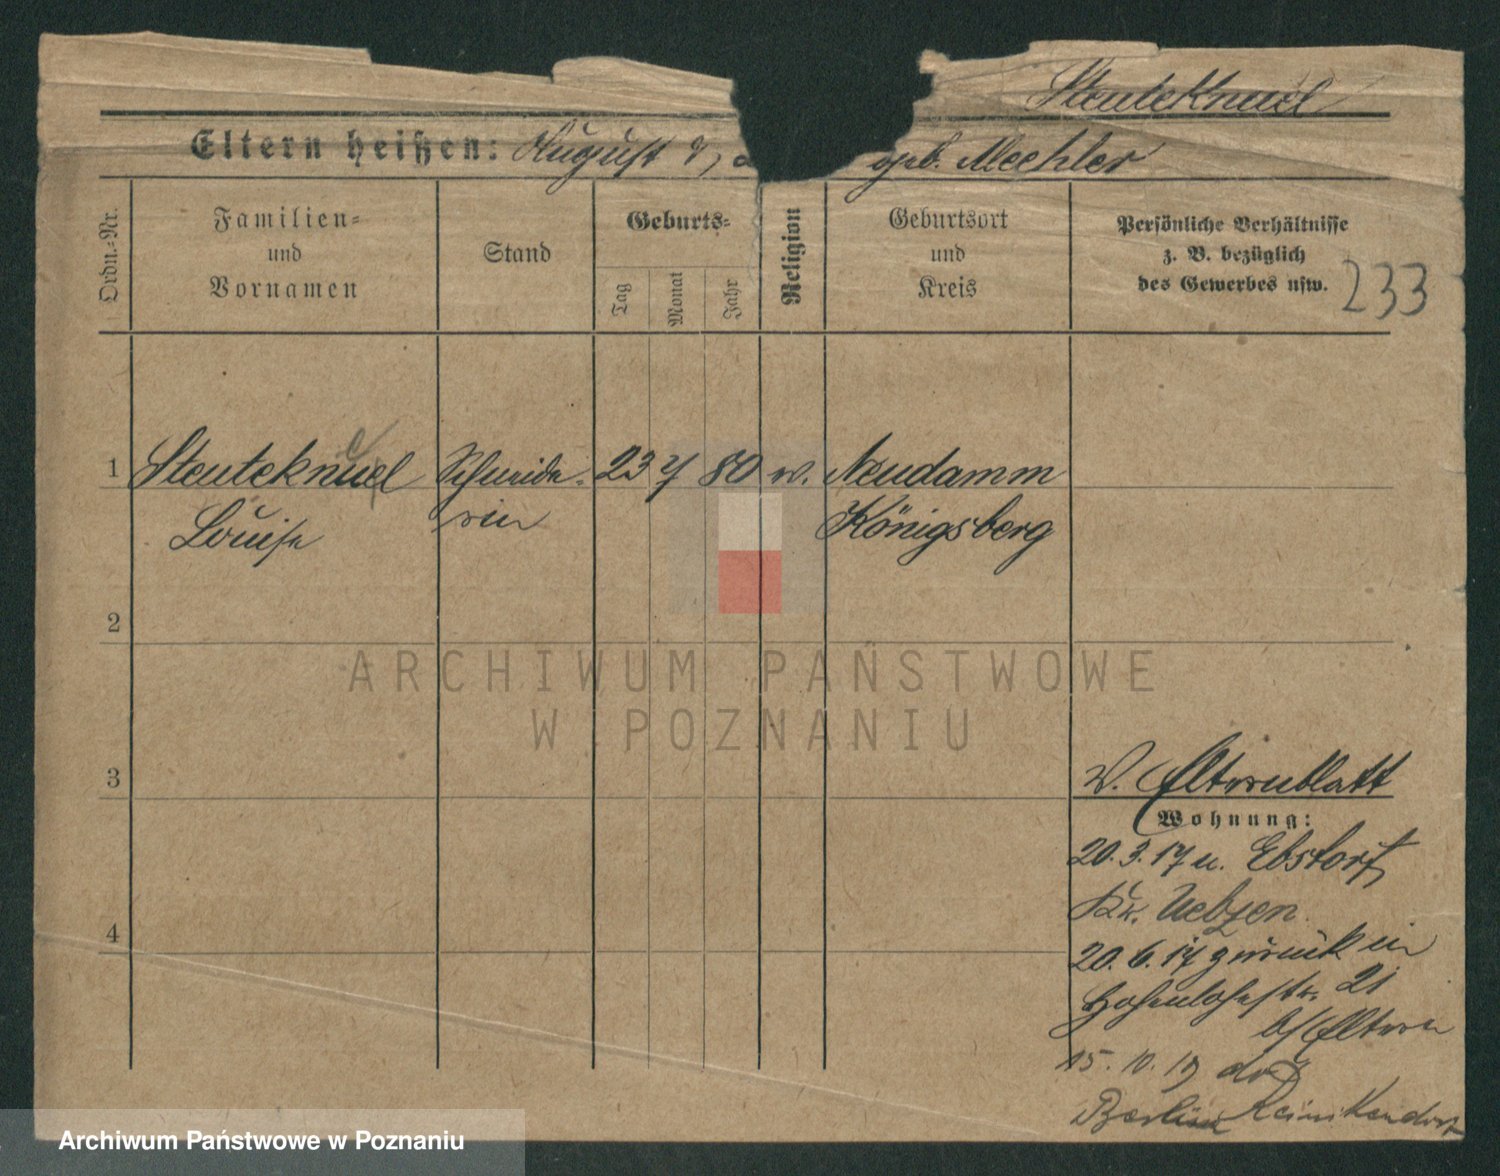 Steuteknuel
Eltern heißen: August geb. Mechler
Ordn.-Nr.
Familien-
und
Vornamen
Stand
Geburts-
Tag
Monat
Jahr
Religion
Geburtsort
und
Kreis
Persönliche Verhältnisse
z. B. bezüglich
des Gewerbes usw.
233
1 Steuteknuel Schneide- 23 7 80 w. Neudamm
Louise rin Königsberg
2
3
4
w. Elternblatt
Wohnung:
20.3.17 n. Ebstorf
Kr. Uelzen
20.6.17 zurück in
Hohenlohestr. 21
b/ Eltern
15.10.19
Berlin Reinikendorf
ARCHIWUM PAŃSTWOWE
W POZNANIU
Archiwum Państwowe w Poznaniu